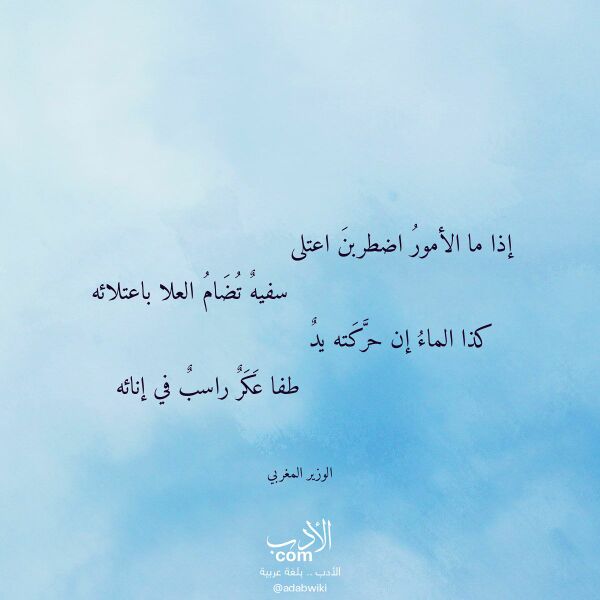 إذا ما الأمورُ اضطربنَ اعتلى
سفيهٌ تُضَامُ العلا باعتلائه
كذا الماءُ إن حرَّكَته يدٌ
طفا عَكَرٌ راسبٌ في إنائه
الوزير المغربي
الأدب
com
الأدب .. بلغة عربية
@adabwiki